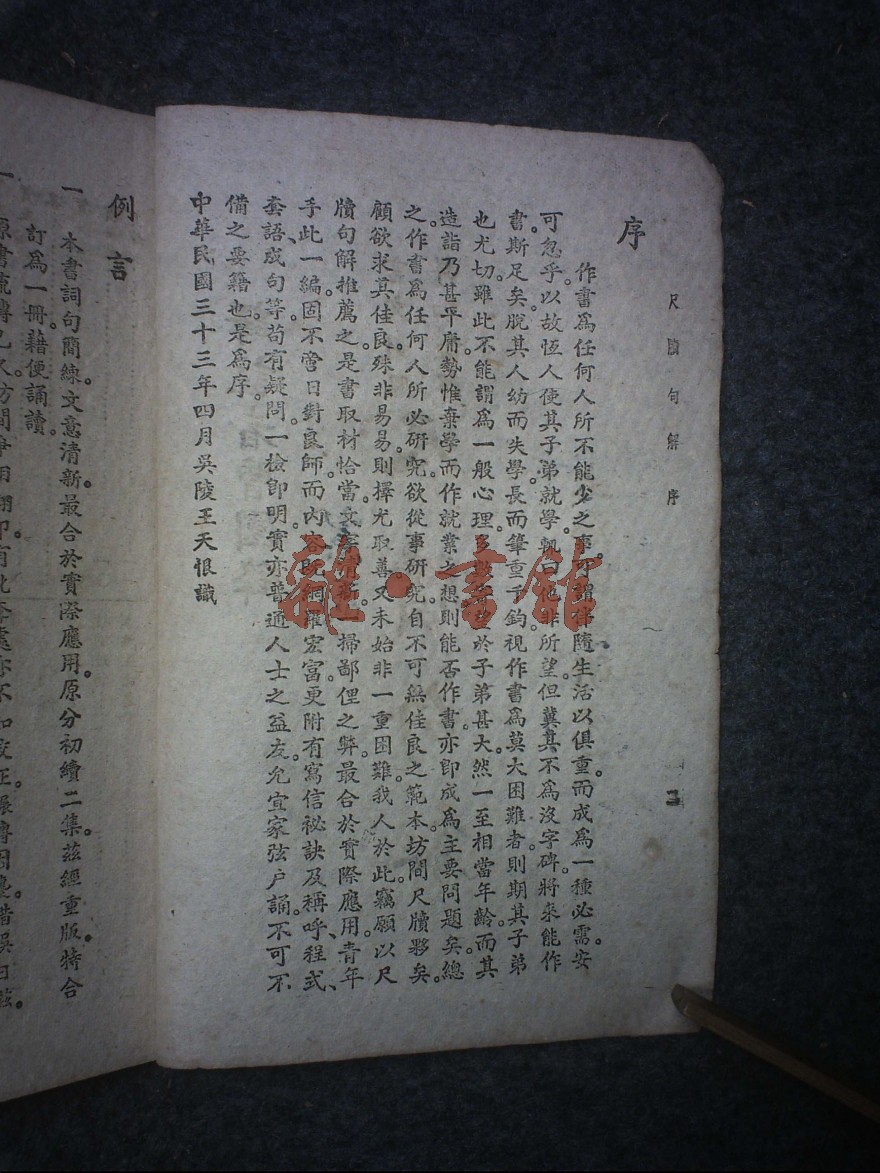 尺牘句解 序 二
序
作書爲任何人所不能少之事。可謂伴隨生活以俱重。而成爲一種必需。安
可忽乎。以故恆人使其子弟就學。輒曰他非所望。但冀其不爲沒字碑。將來能作
書斯足矣。脫其人幼而失學。長而筆重千鈞。視作書爲莫大困難者。則期其子弟
也尤切。雖此不能謂爲一般心理。多數 望於子弟甚大。然一至相當年齡。而其
造詣乃甚平庸。勢惟棄學而作就業之想。則能否作書。亦卽成爲主要問題矣。總
之。作書爲任何人所必研究。欲從事研究。自不可無佳良之範本。坊間尺牘夥矣。
顧欲求其佳良。殊非易易。則擇尤取善。又未始非一重困難。我人於此。竊願以尺
牘句解推薦之。是書取材恰當。文 一掃鄙俚之弊。最合於實際應用。青年
手此一編。固不啻日對良師。而內容旣網羅宏富。更附有寫信祕訣及稱呼、程式、
套語、成句等。苟有疑問。一檢卽明。實亦普通人士之益友。允宜家弦户誦。不可不
備之要籍也。是爲序。
中華民國三十三年四月吳陵王天恨識
例言
一 本書詞句簡練。文意清新。最合於實際應用。原分初續二集。茲經重版。特合
訂爲一冊。藉便誦讀。
一 原書流傳已久。坊間
雜·書館